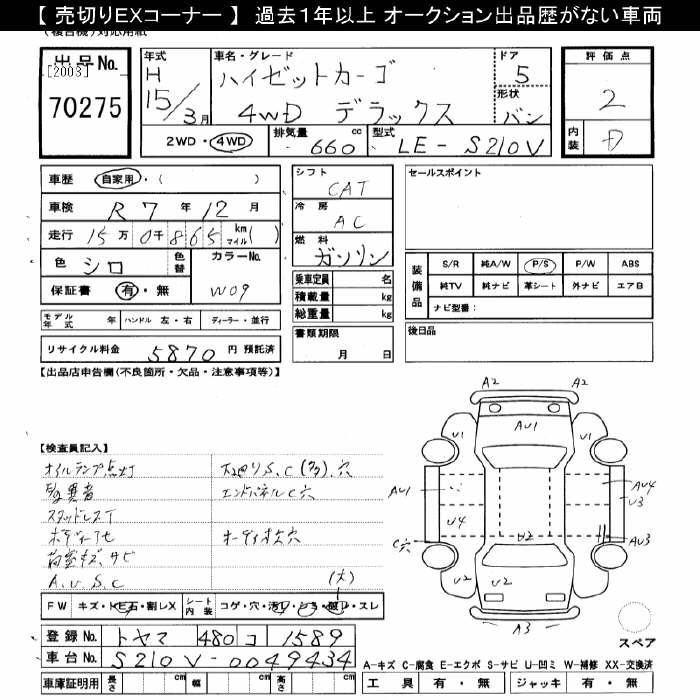 【 売切りEXコーナー 】 過去1年以上 オークション出品歴がない車両
(複合機)対応用紙
出品No.
[2003]
70275
年式
H
15/3月
車名・グレード
ハイゼットカーゴ
4WD デラックス
ドア
5
形状
バン
2WD・4WD
排気量
660 cc
型式
LE-S210V
評価点
2
内装
D
車歴
自家用・( )
車検
R 7 年 12 月
走行
15万 0千 865 km マイル ( )
色
シロ
色替
カラーNo.
W09
保証書
有・無
モデル年式 年
ハンドル 左・右
ディーラー・並行
リサイクル料金
5870 円 預託済
シフト
CAT
冷房
AC
燃料
ガソリン
乗車定員 名
積載量 kg
総重量 kg
書類期限
月 日
セールスポイント
装備品
S/R 純A/W P/S P/W ABS
純TV 純ナビ 革シート 外ナビ エアB
ナビ型番:
後日品
【出品店申告欄(不良箇所・欠品・注意事項等)】
【検査員記入】
オイルランプ点灯
スタッドレスT
荷室キズ、サビ
A.U.S.C
下廻りS.C(多)、穴
エンドパネルC穴
オーディオ欠穴
(大)
FW キズ・トビ石・割レX
シート内装 コゲ・穴・汚レ・シミ・破レ・スレ
登録No.
トヤマ 480 コ 1589
車台No.
S210V-0049434
車庫証明用 長さ cm 幅 cm 高さ cm
A2 A2
AU1
U1 U1
AU1
AU4
U3
U4
C穴
AU3
U2 U2
U2
A3
スペア
A-キズ C-腐食 E-エクボ S-サビ U-凹ミ W-補修 XX-交換済
工具 有・無 ジャッキ 有・無